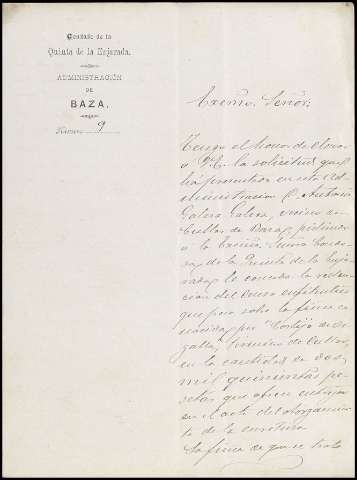 Condado de la
Quinta de la Enjarada.
ADMINISTRACIÓN
DE
BAZA.
Número 9
Excmo. Señor:
Tengo el honor de elevar
a V.E. la solicitud que
ha presentado en esta Ad-
ministracion D. Antonio
Galera Galera, vecino de
Cullar de Baza, pidiendo
a la Excma. Sra. Conde-
sa de la Quinta de la Enja-
rada, le conceda la reden-
cion del censo enfiteutico
que pesa sobre la finca co-
nocida por Cortijo de
termino de Cullar,
en la cantidad de dos
mil quinientas pe-
setas que ofrece entregar
en el acto del otorgamien-
to de la escritura
La finca de que se trata